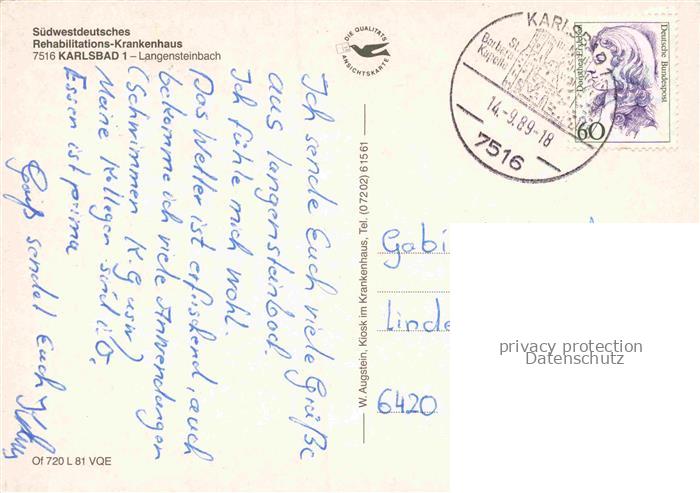 Südwestdeutsches
Rehabilitations-Krankenhaus
7516 KARLSBAD 1 – Langensteinbach
DIE QUALITÄTS
ANSICHTSKARTE
KARLSBAD 1
St.
Barbara
Kapelle
14.-9.89-18
7516
Deutsche Bundespost
60
Ich sende Euch viele Grüße
aus Langensteinbach.
Ich fühle mich wohl.
Das Wetter ist erfrischend, auch
bekomme ich viele Anwendungen
(Schwimmen K.G usw)
Meine Kollegen sind i.O.
Essen ist prima
Gruß sendet Euch
W. Augstein, Kiosk im Krankenhaus, Tel. (07202) 61561
Gabi
Linde
6420
privacy protection
Datenschutz
Of 720 L 81 VQE